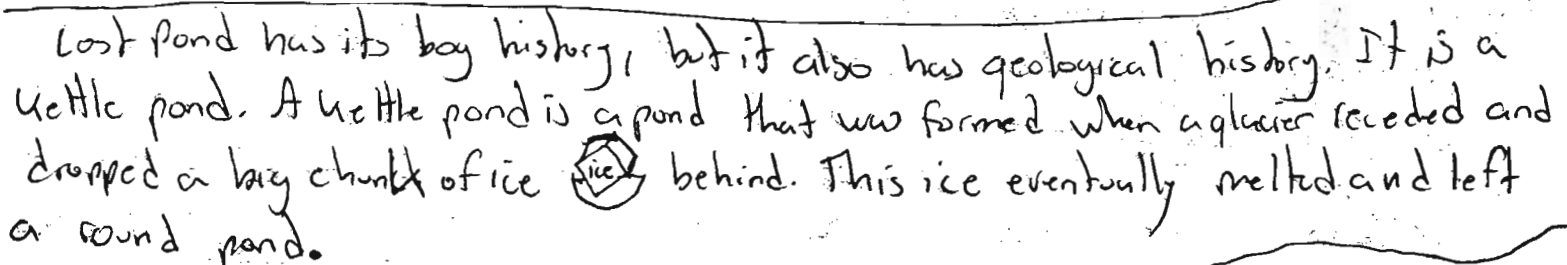 Lost Pond has its bog history, but it also has geological history. It is a
kettle pond. A kettle pond is a pond that was formed when a glacier receded and
dropped a big chunk of ice ice behind. This ice eventually melted and left
a round pond.